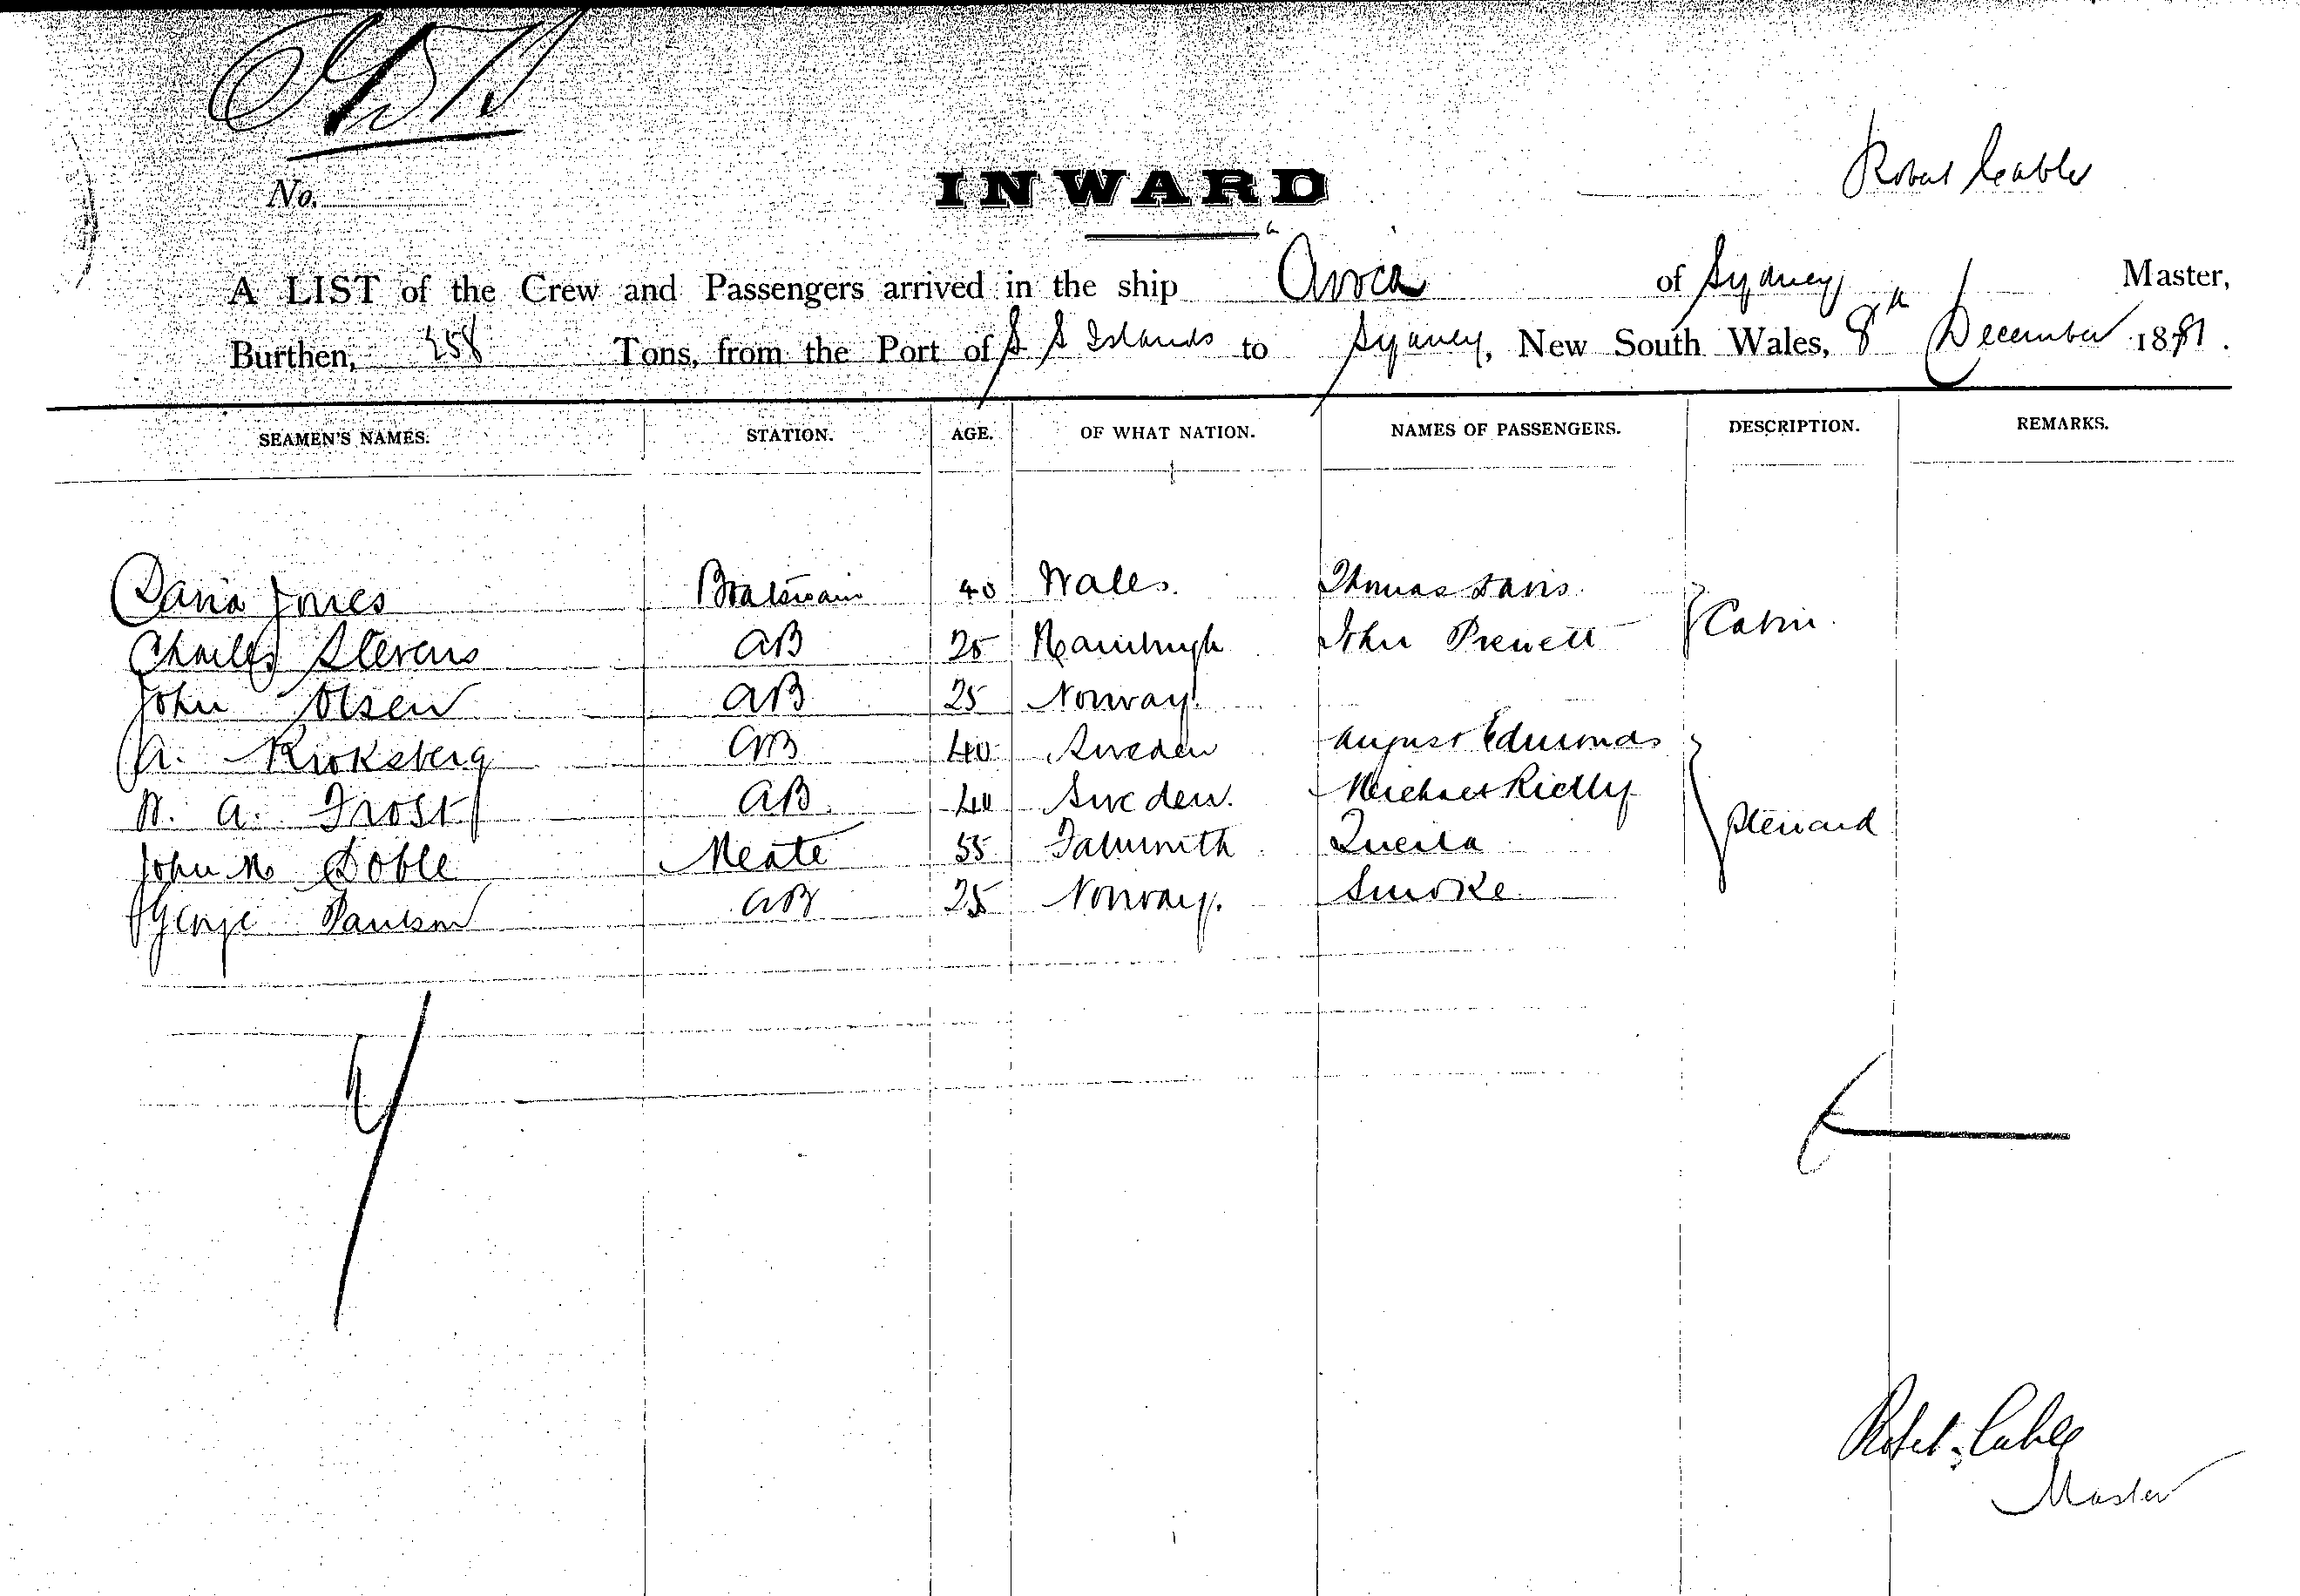 No.
INWARD
Robert Cable
A LIST of the Crew and Passengers arrived in the ship Avoca of Sydney Master,
Burthen, 258 Tons, from the Port of S S Islands to Sydney, New South Wales, 8th December 1881.
SEAMEN'S NAMES. STATION. AGE. OF WHAT NATION. NAMES OF PASSENGERS. DESCRIPTION. REMARKS.
David Jones Boatswain 40 Wales. Thomas Davis. Cabin.
Charles Stevens AB 25 Hamburgh John Prewett
John Olsen AB 25 Norway.
A. Kroksberg AB 40 Sweden August Edmonds
A. Frost AB. 40 Sweden. Michael Rielly Steerard
John M Doble Mate 55 Falmouth
George Paulson AB 25 Norway. Smoke
Robert Cable
Master